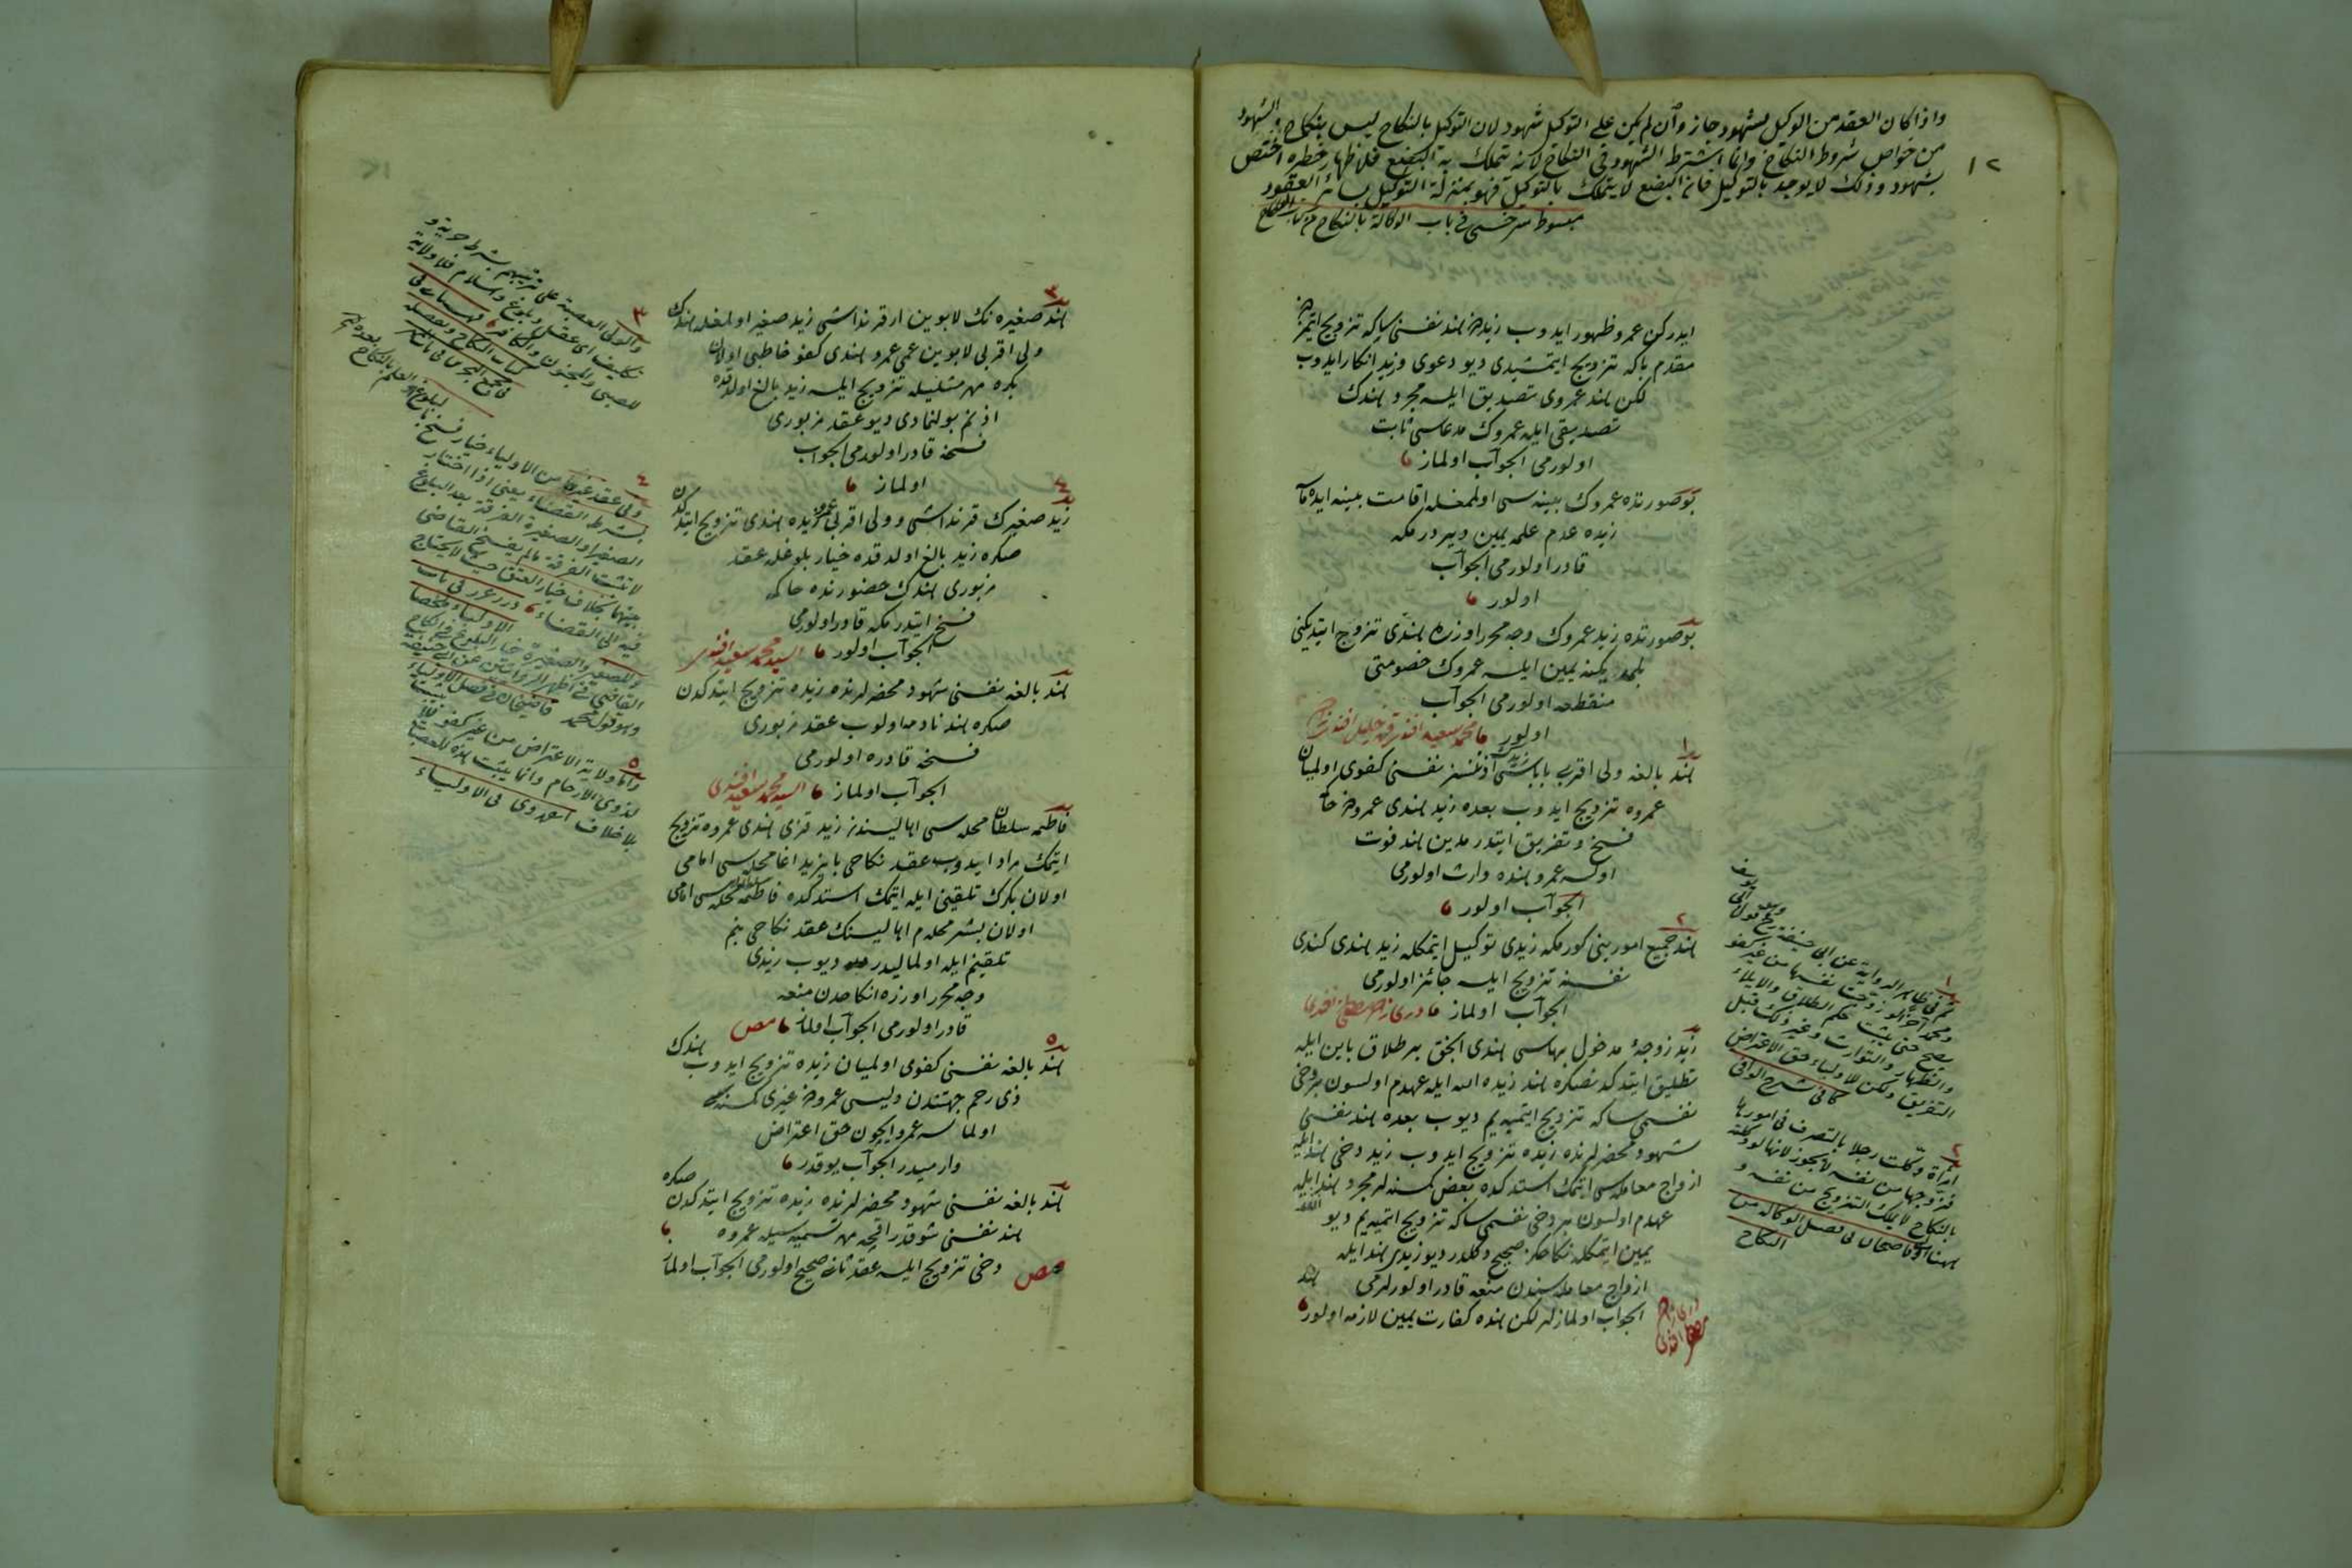 واذا كان العقد من الوكيل بشهود جاز وان لم يكن على التوكيل شهود لان التوكيل بالنكاح ليس بنكاح والشهود
من خواص شروط النكاح وانما اشترط الشهود فى النكاح لانه يتملك به البضع فلاظهار خطره اختص
بشهود وذلك لا يوجد بالتوكيل فان البضع لا يتملك بالتوكيل فهو بمنزلة التوكيل بسائر العقود
مبسوط سرخسى فى باب الوكالة بالنكاح من كتاب النكاح
١٢
ايدركن عمرو ظهور ايدوب زيده هند نفسنى ساكه تزويج ايتمزدن
مقدم باكه تزويج ايتمشيدى ديو دعوى وزيد انكار ايدوب
لكن هند عمروى تصديق ايلسه مجرد هندك
تصديقى ايله عمروك مدعاسى ثابت
اولورمى الجواب اولماز
بو صورتده عمروك بينه سى اولمغله اقامت بينه ايده
زيده عدم علمه يمين ويردرمكه
قادر اولورمى الجواب
اولور
بو صورتده زيد عمروك وجه محرر اوزره هندى تزوج ايتديكنى
بلمديكنه يمين ايلسه عمروك خصومتى
منقطعه اولورمى الجواب
اولور محمد سعيد افندى
١
هند بالغه ولى اقربى باباسى زيدك اذنسز نفسنى كفوى اولميان
عمروه تزويج ايدوب بعده زيد هندى عمرودن
فسخ وتفريق ايتدرمدين هند فوت
اولسه عمرو هنده وارث اولورمى
الجواب اولور
٢
هند جميع امورينى كورمكه زيدى توكيل ايتمكله زيد هندى كندى
نفسنه تزويج ايلسه جائز اولورمى
الجواب اولماز
زيد زوجۀ مدخول بهاسى هندى الجق بر طلاق باين ايله
تطليق ايتدكدنصكره هند زيده الله ايله عهدم اولسون بر دخى
نفسمى ساكه تزويج ايتميه يم ديوب بعده هند نفسنى
شهود محضرلرنده زيده تزويج ايدوب زيد دخى هند ايله
ازواج معامله سى ايتمك استدكده بعض كمسنه لر مجرد هند الله ايله
عهدم اولسون بر دخى نفسمى ساكه تزويج ايتميه يم ديو
يمين ايتمكله نكاحكز صحيح دكلدر ديو زيدى هند ايله
ازواج معامله سندن منعه قادر اولورلرمى
الجواب اولمازلر لكن هنده كفارت يمين لازمه اولور
١
ثم فى ظاهر الرواية عن ابى حنيفة وهو قول ابى يوسف
ومحمد آخرا لو زوجت نفسها من غير كفو
يصح حتى يثبت حكم الطلاق والايلاء
والظهار والتوارث وغير ذلك قبل
التفريق ولكن للاولياء حق الاعتراض
كما فى شرح الوافى
٢
امرأة وكلت رجلا بالتصرف فى امورها
فزوجها من نفسه لا يجوز لانها لو وكلته
بالنكاح لا يملك التزويج من نفسه و
ههنا اولى قاضيخان فى فصل الوكالة من
النكاح
٣
هند صغيره نك لابوين ار قرنداشى زيد صغير اولمغله هندك
ولى اقربى لابوين عمى عمرو هندى كفو خاطبى اولان
بكره مهر مثليله تزويج ايلسه زيد بالغ اولدقده
اذنم بولنمادى ديو عقد مزبورى
فسخه قادر اولورمى الجواب
اولماز
٤
زيد صغيرك قرنداشى وولى اقربى عمرو زيده هندى تزويج ايتدكدن
صكره زيد بالغ اولدقده خيار بلوغله عقد
مزبورى هندك حضورنده حاكمه
فسخ ايتدرمكه قادر اولورمى
الجواب اولور السيد محمد سعيد افندى
هند بالغه نفسنى شهود محضرلرنده زيده تزويج ايتدكدن
صكره هند نادمه اولوب عقد مزبورى
فسخه قادره اولورمى
الجواب اولماز السيد محمد سعيد افندى
فاطمه سلطان محله سى اهاليسندن زيد قزى هندى عمروه تزويج
ايتمك مراد ايدوب عقد نكاحى بايزيد اغا محله سى امامى
اولان بكرك تلقينى ايله ايتمك استدكده فاطمه سلطان محله سى امامى
اولان بشر محله م اهاليسنك عقد نكاحى بنم
تلقينم ايله اولماليدر ديوب زيدى
وجه محرر اوزره انكاحدن منعه
قادر اولورمى الجواب اولماز مص
٥
هند بالغه نفسنى كفوى اولميان زيده تزويج ايدوب هندك
ذى رحم جهتندن وليسى عمرودن غيرى كمسنه
اولماسه عمرو ايچون حق اعتراض
وارميدر الجواب يوقدر
هند بالغه نفسنى شهود محضرلرنده زيده تزويج ايتدكدن صكره
هند نفسنى شو قدر اقچه مهر تسميه سيله عمروه
دخى تزويج ايلسه عقد ثانى صحيح اولورمى الجواب اولماز
مص
٣
والولى العصبة على ترتيبهم بشرط حرية و
تكليف اى عقل وبلوغ واسلام فلا ولاية
للصبى والمجنون والكافر قهستانى فى
كتاب النكاح
٤
وفى عقد غيرهما من الاولياء خيار فسخ
بشرط القضاء يعنى اذا اختار
الصغير او الصغيرة الفرقة بعد البلوغ
لا تثبت الفرقة ما لم يفسخ القاضى
بينهما بخلاف خيار العتق حيث لا يحتاج
فيه الى القضاء درر غرر فى باب
الاولياء ملخصا
وللصغير والصغيرة خيار البلوغ فى انكاح
القاضى فى اظهر الروايتين عن ابى حنيفة
وهو قول محمد قاضيخان فى فصل الاولياء
٥
واما ولاية الاعتراض من غير كفو فلا تثبت
لذوى الارحام وانما يثبت هذه للعصبات
بلا خلاف انقروى فى الاولياء